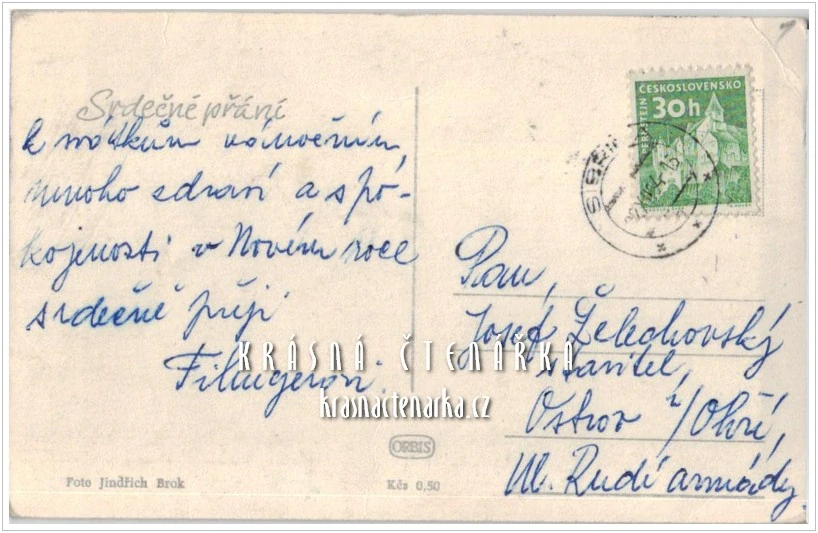 Srdečné přání
k svátkům vánočním,
mnoho zdraví a spo-
kojenosti v Novém roce
srdečně přejí
ČESKOSLOVENSKO
30h
PERNŠTEJN
Pan,
Josef Želechovský
stavitel,
Ostrov n/Ohří,
Ul. Rudé armády
KRÁSNÁ ČTENÁŘKA
krasnactenarka.cz
ORBIS
Foto Jindřich Brok
Kčs 0,50